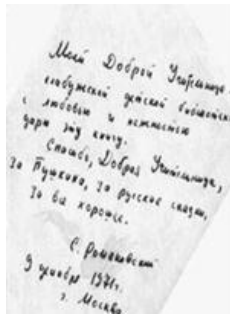 Моей Доброй Учительнице
елабужской детской библиотеки
с любовью и нежностью
дарю эту книгу.
Спасибо, Добрая Учительница,
За Пушкина, за русские сказки,
За все хорошее.
С. Романовский
9 декабря 1971г.
г. Москва